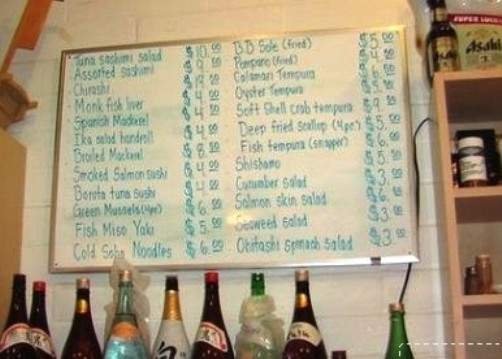 Tuna sashimi salad $10.00
Assorted sashimi $9.00
Chirashi
Monk fish liver $4.00
Spanish Mackerel $4.00
Ika salad handroll $4.00
Broiled Mackerel $8.00
Smoked Salmon sushi $4.00
Bonita tuna sushi $4.00
Green Mussels (4pc) $6.00
Fish Miso Yaki $5.00
Cold Soba Noodles $6.00
B.B Sole (fried) $5.00
Pompano (fried)
Calamari Tempura
Oyster Tempura
Soft Shell crab tempura $9.00
Deep fried scallop (4pc) $5.00
Fish tempura (snapper) $6.00
Shishamo $5.00
Cucumber salad $3.00
Salmon skin salad $6.00
Seaweed salad $3.00
Ohitashi spinach salad $3.00
SUPER
Asahi